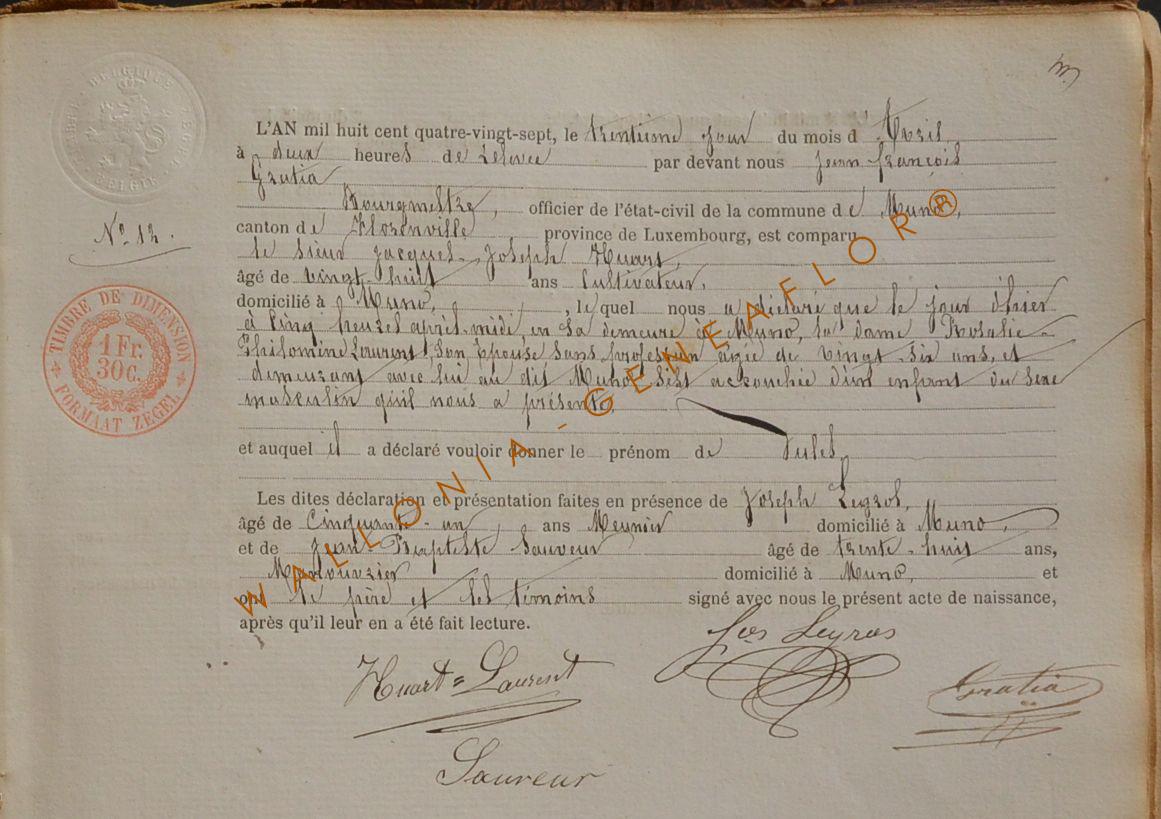 BELGIQUE
BELGIE
L'AN mil huit cent quatre-vingt-sept, le trentième jour du mois d Avril
à deux heures de relevée par devant nous Jean François
Gratia
Bourgmestre, officier de l'état-civil de la commune de Muno,
N° 12.
canton de Florenville province de Luxembourg, est comparu
le sieur Jacques-Joseph Huart,
âgé de vingt-huit ans Cultivateur,
domicilié à Muno, lequel nous a déclaré que le jour d'hier
à cinq heures après-midi, en sa demeure à Muno, la dame Rosalie-
Philomine Laurent, son épouse sans profession agée de vingt-six ans, et
demeurant avec lui au dit Muno s'est accouchée d'un enfant du sexe
masculin qu'il nous a présenté
TIMBRE DE DIMENSION
1 Fr.
30 c.
FORMAAT ZEGEL
et auquel il a déclaré vouloir donner le prénom de Jules
Les dites déclaration et présentation faites en présence de Joseph Leyros,
âgé de cinquante-un ans Meunier domicilié à Muno,
et de Jean-Baptiste Sauveur âgé de trente-huit ans,
domicilié à Muno, et
ont le père et les témoins signé avec nous le présent acte de naissance,
après qu'il leur en a été fait lecture.
Huart=Laurent
Jos Leyros
Gratia
Sauveur
WALLONIA-GENEAFLOR®